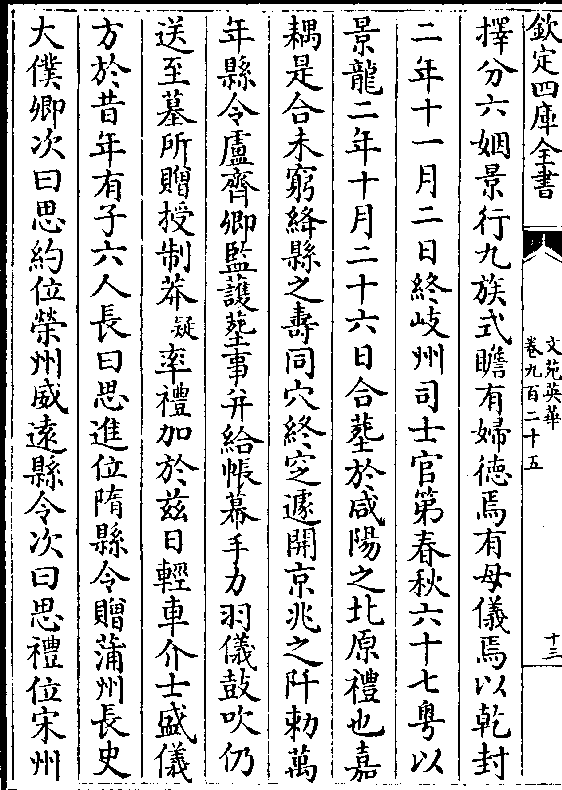 欽定四庫全書
文苑英華
卷九百二十五
十三
擇分六姻景行九族式瞻有婦徳焉有母儀焉以乾封
二年十一月二日終岐州司士官第春秋六十七粤以
景龍二年十月二十六日合塟於咸陽之北原禮也嘉
耦是合未窮絳縣之壽同穴終空遽開京兆之阡勅萬
年縣令盧齊卿監護塟事并給帳幕手力羽儀鼓吹仍
送至墓所贈授制莽疑率禮加於兹日輕車介士盛儀
方於昔年有子六人長曰思進位隋縣令贈蒲州長史
大僕卿次曰思約位榮州威逺縣令次曰思禮位宋州